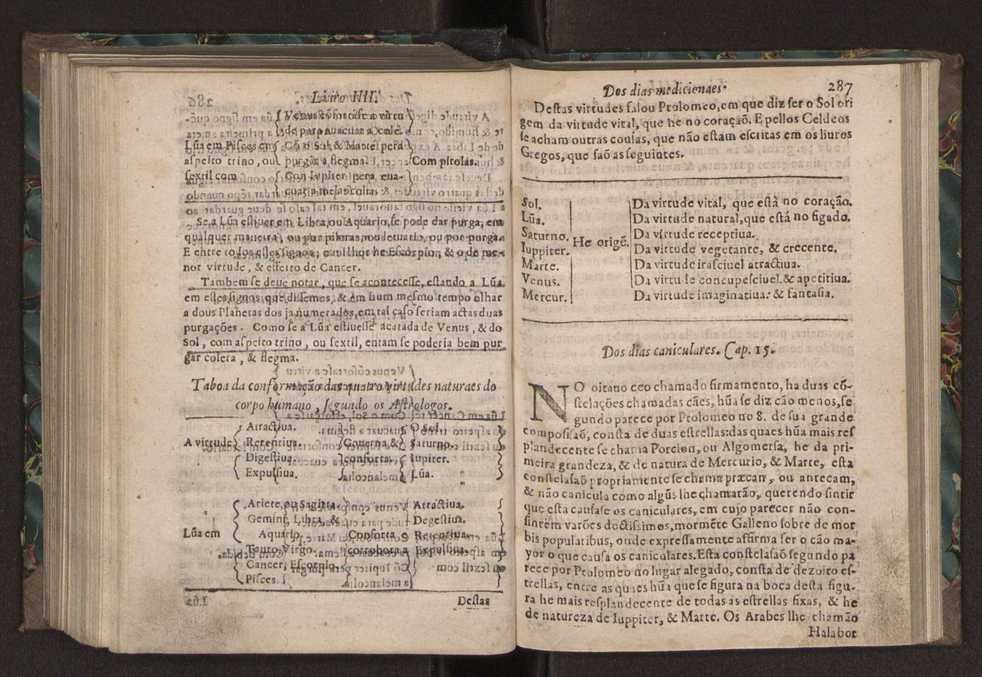 Liuro IIII.
Venus cõfortase a virtu
de para auacuar a cole.
Lũa em Pisces em Cõ o Sol, & Marte pera
aspeito trino, ou purgar a flegma. Com pirolas.
sextil com Com Iupiter pera, eua-
cuar a melancolia:
Se a Lũa estiuer em Libra, ou Aquario, se pode dar purga, em
qualquer maneira, ou por pitoras, ou detuario, ou por purga.
E entre todos estes signos, o milhor he Escorpio, & o de me-
nor virtude, & effeito de Cancer.
Tambem se deue notar, que se acontecesse, estando a Lũa,
em estes signos que dissemos, & em hum mesmo tempo olhar
a dous Planetas dos ja numerados, em tal caso seriam actas duas
purgações. Como se a Lũa estiuesse acatada de Venus, & do
Sol, com aspeito trino, ou sextil, entam se poderia bem pur
gar colera, & flegma.
Taboa da conformação das quatro virtudes naturaes do
corpo humano, segundo os Astrologos.
Atractiua. O Sol.
A virtude Retentiua. Gouerna & Saturno.
Digestiua. conforta. Iupiter.
Expulsiua. Lũa.
Ariete, ou Sagitta. Atractiua.
Gemini, Libra, & Degestiua.
Lũa em Aquario. Conforta Retentiua.
Tauro, Virgo. corrobora a Expulsiua.
Cancer, Escorpio
Pisces.
Destas
Dos dias medicionaes.
287
Destas virtudes falou Ptolomeo, em que diz ser o Sol ori
gem da virtude vital, que he no coraçaõ. E pellos Celdeos
se acham outras cousas, que não estam escritas em os liuros
Gregos, que saõ as seguintes.
Sol. Da virtude vital, que està no coração.
Lũa. Da virtude natural, que està no figado.
Saturno. Da virtude receptiua.
Iuppiter. He origẽ. Da virtude vegetante, & crecente.
Marte. Da virtude irasciuel atractiua.
Venus. Da virtude concupesciuel & apetitiua.
Mercur. Da virtude imaginatiua: & fantasia.
Dos dias caniculares. Cap. 15.
NO oitauo ceo chamado firmamento, ha duas cõ-
stelações chamadas cães, hũa se diz cão menos, se
gundo parece por Ptolomeo no 8. de sua grande
composisaõ, consta de duas estrellas: das quaes hũa mais res
plandecente se chama Porcion, ou Algomersa, he da pri-
meira grandeza, & de natura de Mercurio, & Marte, esta
constelasaõ propriamente se chama præcan, ou antecam,
& não canicula como algũs lhe chamarão, querendo sintir
que esta causase os caniculares, em cujo parecer não con-
sintem varões doctissimos, mormẽte Galleno sobre de mor
bis popularibus, onde expressamente affirma ser o cão ma-
yor o que causa os caniculares. Esta constelasaõ segundo pa
rece por Ptolomeo no lugar alegado, consta de dezoito es-
trellas, entre as quaes hũa que se figura na boca desta figu-
ra he mais resplandecente de todas as estrellas fixas, & he
de natureza de Iuppiter, & Marte. Os Arabes lhe chamão
Halabor